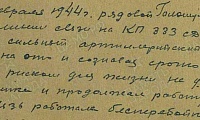 евраля 1944г. рядовой
линии связи на КП 333 СД
сильный артиллерийский
на это и сознавая
риском для жизни не
и продолжал работ
язь работала бесперебойн